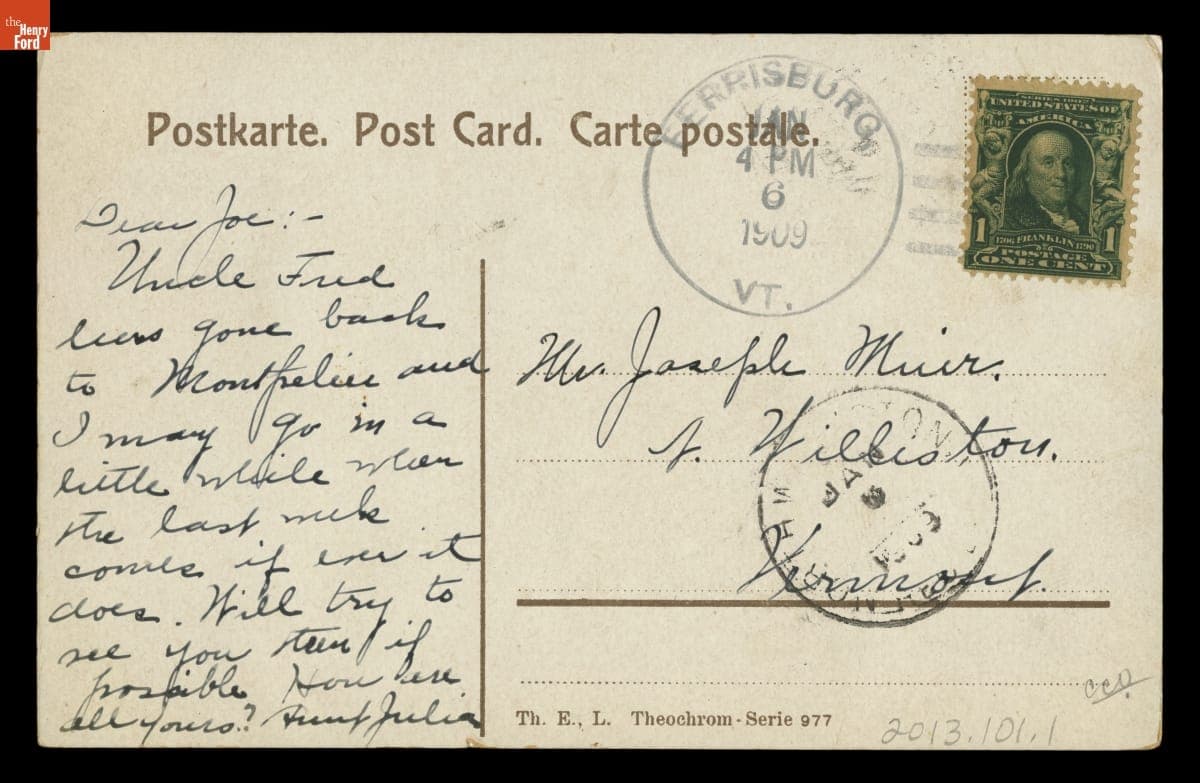 the
Henry
Ford
Postkarte. Post Card. Carte postale.
FERRISBURG,
JAN
4 PM
6
1909
VT.
SERIES 1902
UNITED STATES OF
AMERICA
1 1706 FRANKLIN 1790 1
POSTAGE
ONE CENT
Dear Joe:-
Uncle Fred
has gone back
to Montpelier and
I may go in a
little while when
the last week
comes if ever it
does. Will try to
see you then if
possible. How are
all yours? Aunt Julia
Mr. Joseph Muir.
N. Williston.
Vermont.
JAN
Th. E., L. Theochrom-Serie 977
2013.101.1